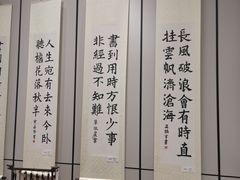 長風破浪會有時直
挂雲帆濟滄海
書到用時方恨少事
非經過不知難
人生宛有去來今卧
聽檐花落秋半